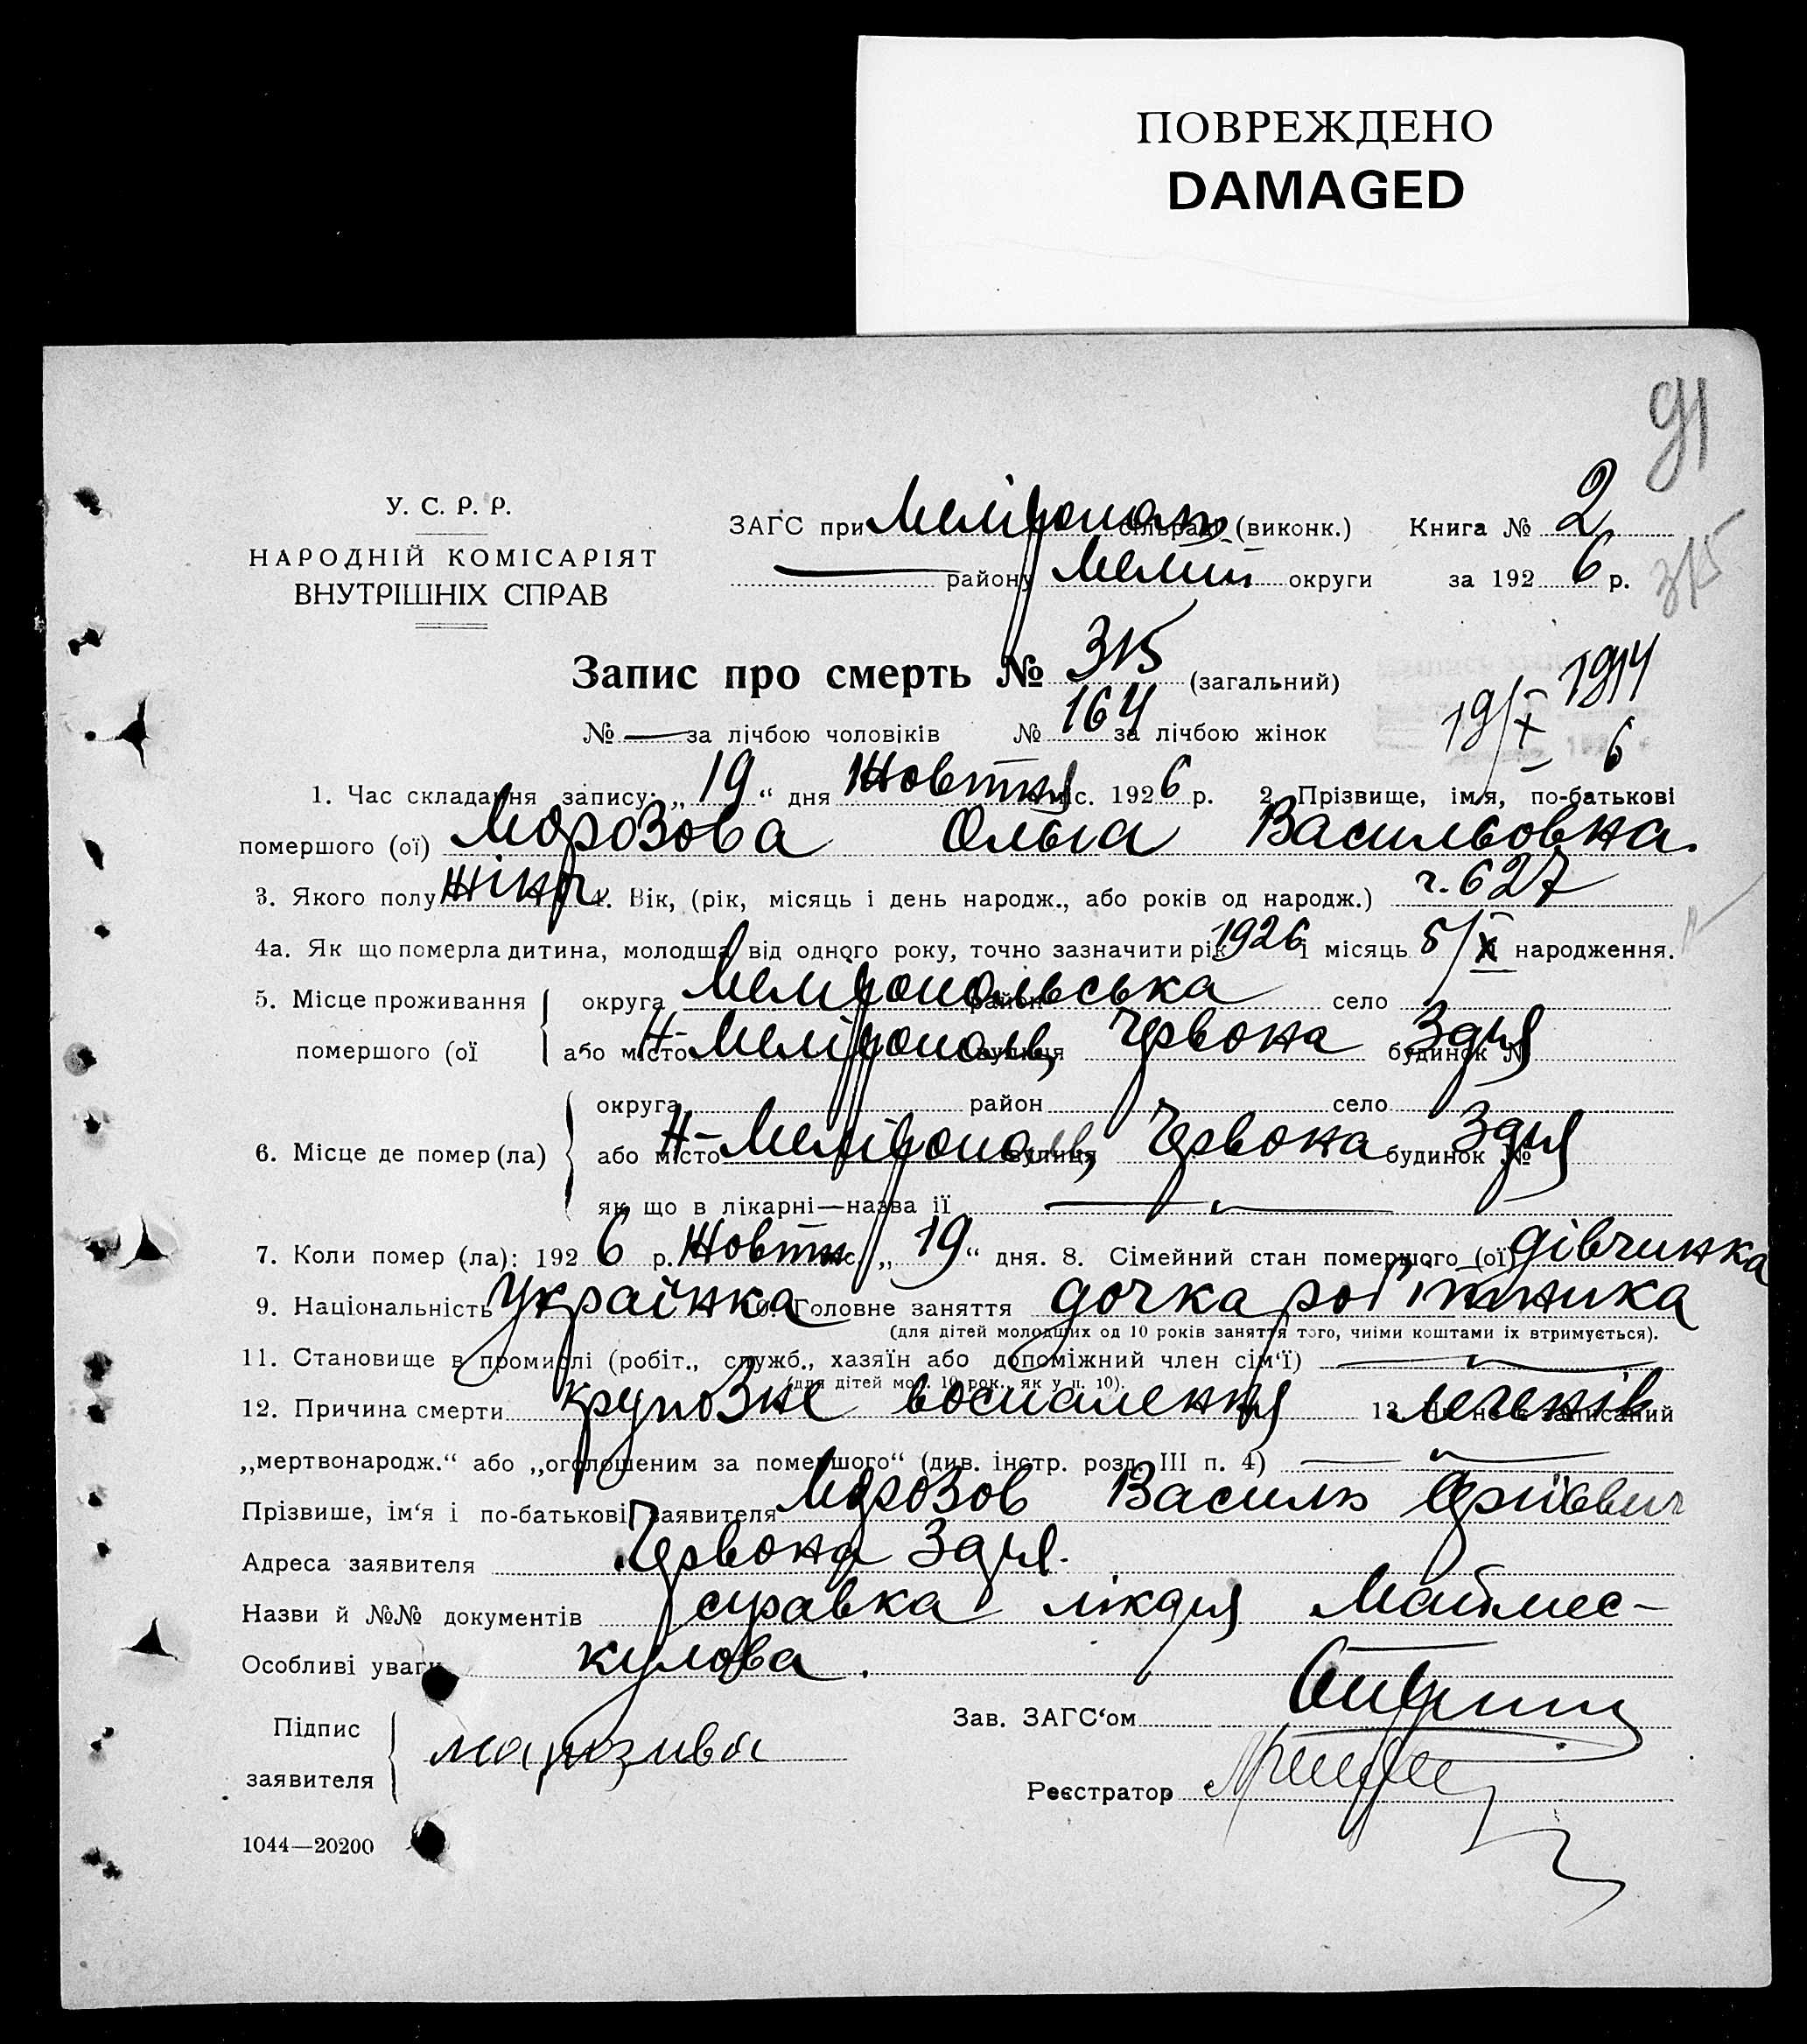 ПОВРЕЖДЕНО
DAMAGED
91
У. С. Р. Р.
НАРОДНІЙ КОМІСАРІЯТ
ВНУТРІШНІХ СПРАВ
ЗАГС при Мелітопол. сільраді (виконк.) Книга № 2
— району Меліт округи за 1926 р.
315
Запис про смерть № 315 (загальний)
№ — за лічбою чоловіків № 164 за лічбою жінок
19/X 6
1. Час складання запису: „19“ дня Жовтня міс. 1926 р. 2. Прізвище, ім'я, по-батькові
помершого (ої) Морозова Ольга Васильовна.
3. Якого полу жіноч 4. Вік, (рік, місяць і день народж., або років од народж.) г. 627
4а. Як що померла дитина, молодша від одного року, точно зазначити рік 1926 і місяць 5/X народження.
5. Місце проживання округа Мелітопольська район село
помершого (ої або місто Н-Мелітополь, вулиця Червона будинок № Задня
округа район село
6. Місце де помер (ла) або місто Н-Мелітополь, вулиця Червона будинок № Задня
як що в лікарні—назва її —
7. Коли помер (ла): 1926 р. Жовтн міс. „19“ дня. 8. Сімейний стан помершого (ої) дівчинка
9. Національність Українка 10. Головне заняття дочка робітника
(для дітей молодших од 10 років заняття того, чиїми коштами їх втримується).
11. Становище в промислі (робіт., служб., хазяїн або допоміжний член сім'ї) —
(для дітей мол. 10 рок., як у п. 10).
12. Причина смерти крупозне воспалення легенів 13. Чи не є записаний
„мертвонародж.“ або „оголошеним за помершого“ (див. інстр. розд. III п. 4) —
Прізвище, ім'я і по-батькові заявителя Морозов Василь
Адреса заявителя Червона Задня.
Назви й №№ документів справка лікаря Маймес-
Особливі уваги кулова.
Підпис
заявителя
Зав. ЗАГС'ом
Реєстратор
1044—20200